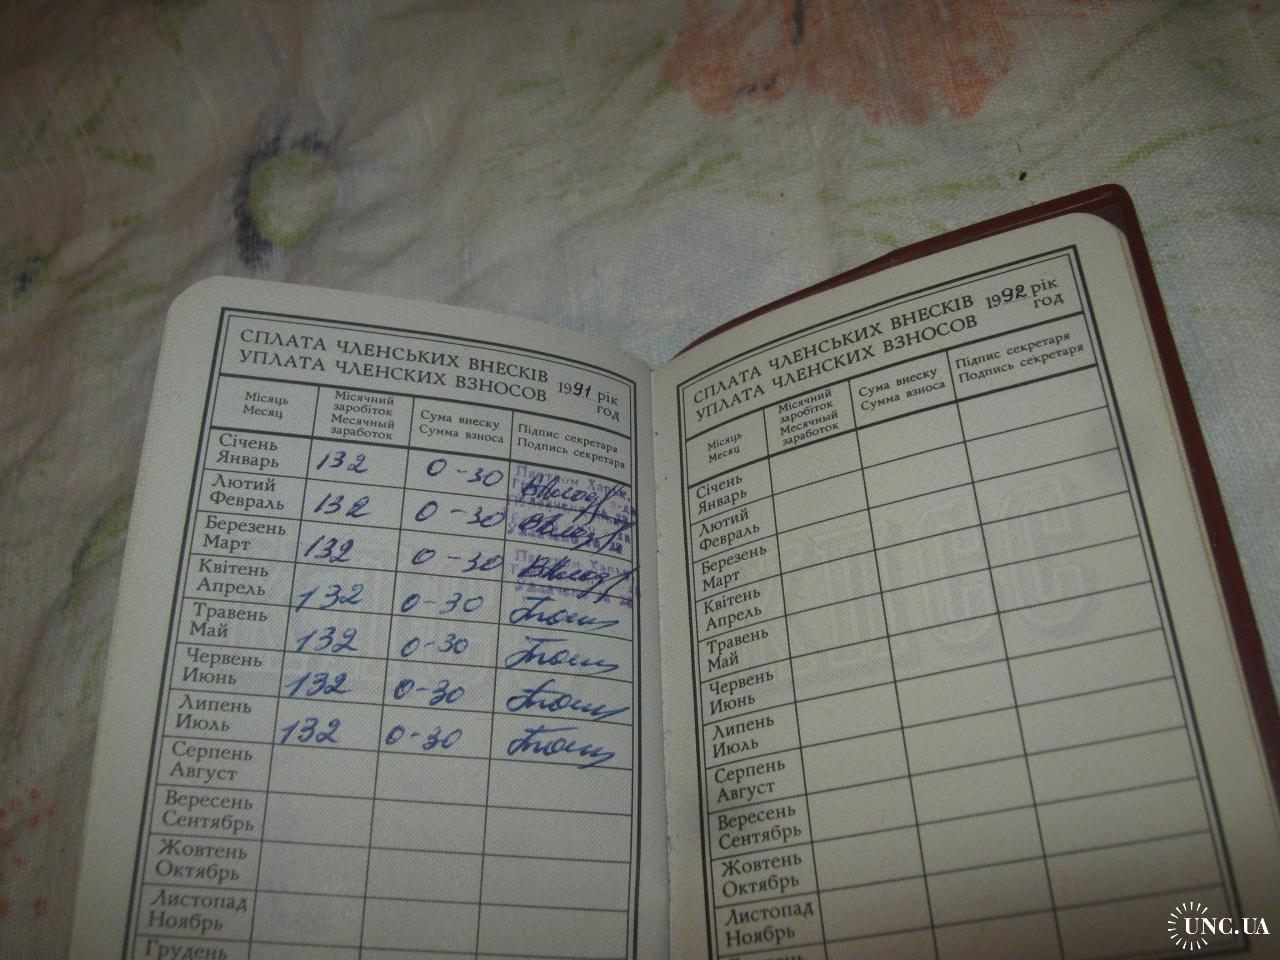 СПЛАТА ЧЛЕНСЬКИХ ВНЕСКІВ 1991 рік
УПЛАТА ЧЛЕНСКИХ ВЗНОСОВ год
Місяць
Месяц
Місячний
заробіток
Месячный
заработок
Сума внеску
Сумма взноса
Підпис секретаря
Подпись секретаря
Січень
Январь
132
0-30
Лютий
Февраль
132
0-30
Березень
Март
132
0-30
Квітень
Апрель
132
0-30
Травень
Май
132
0-30
Червень
Июнь
132
0-30
Липень
Июль
132
0-30
Серпень
Август
Вересень
Сентябрь
Жовтень
Октябрь
Листопад
Ноябрь
Грудень
СПЛАТА ЧЛЕНСЬКИХ ВНЕСКІВ 1992 рік
УПЛАТА ЧЛЕНСКИХ ВЗНОСОВ год
Місяць
Месяц
Місячний
заробіток
Месячный
заработок
Сума внеску
Сумма взноса
Підпис секретаря
Подпись секретаря
Січень
Январь
Лютий
Февраль
Березень
Март
Квітень
Апрель
Травень
Май
Червень
Июнь
Липень
Июль
Серпень
Август
Вересень
Сентябрь
Жовтень
Октябрь
Листопад
Ноябрь
UNC.UA